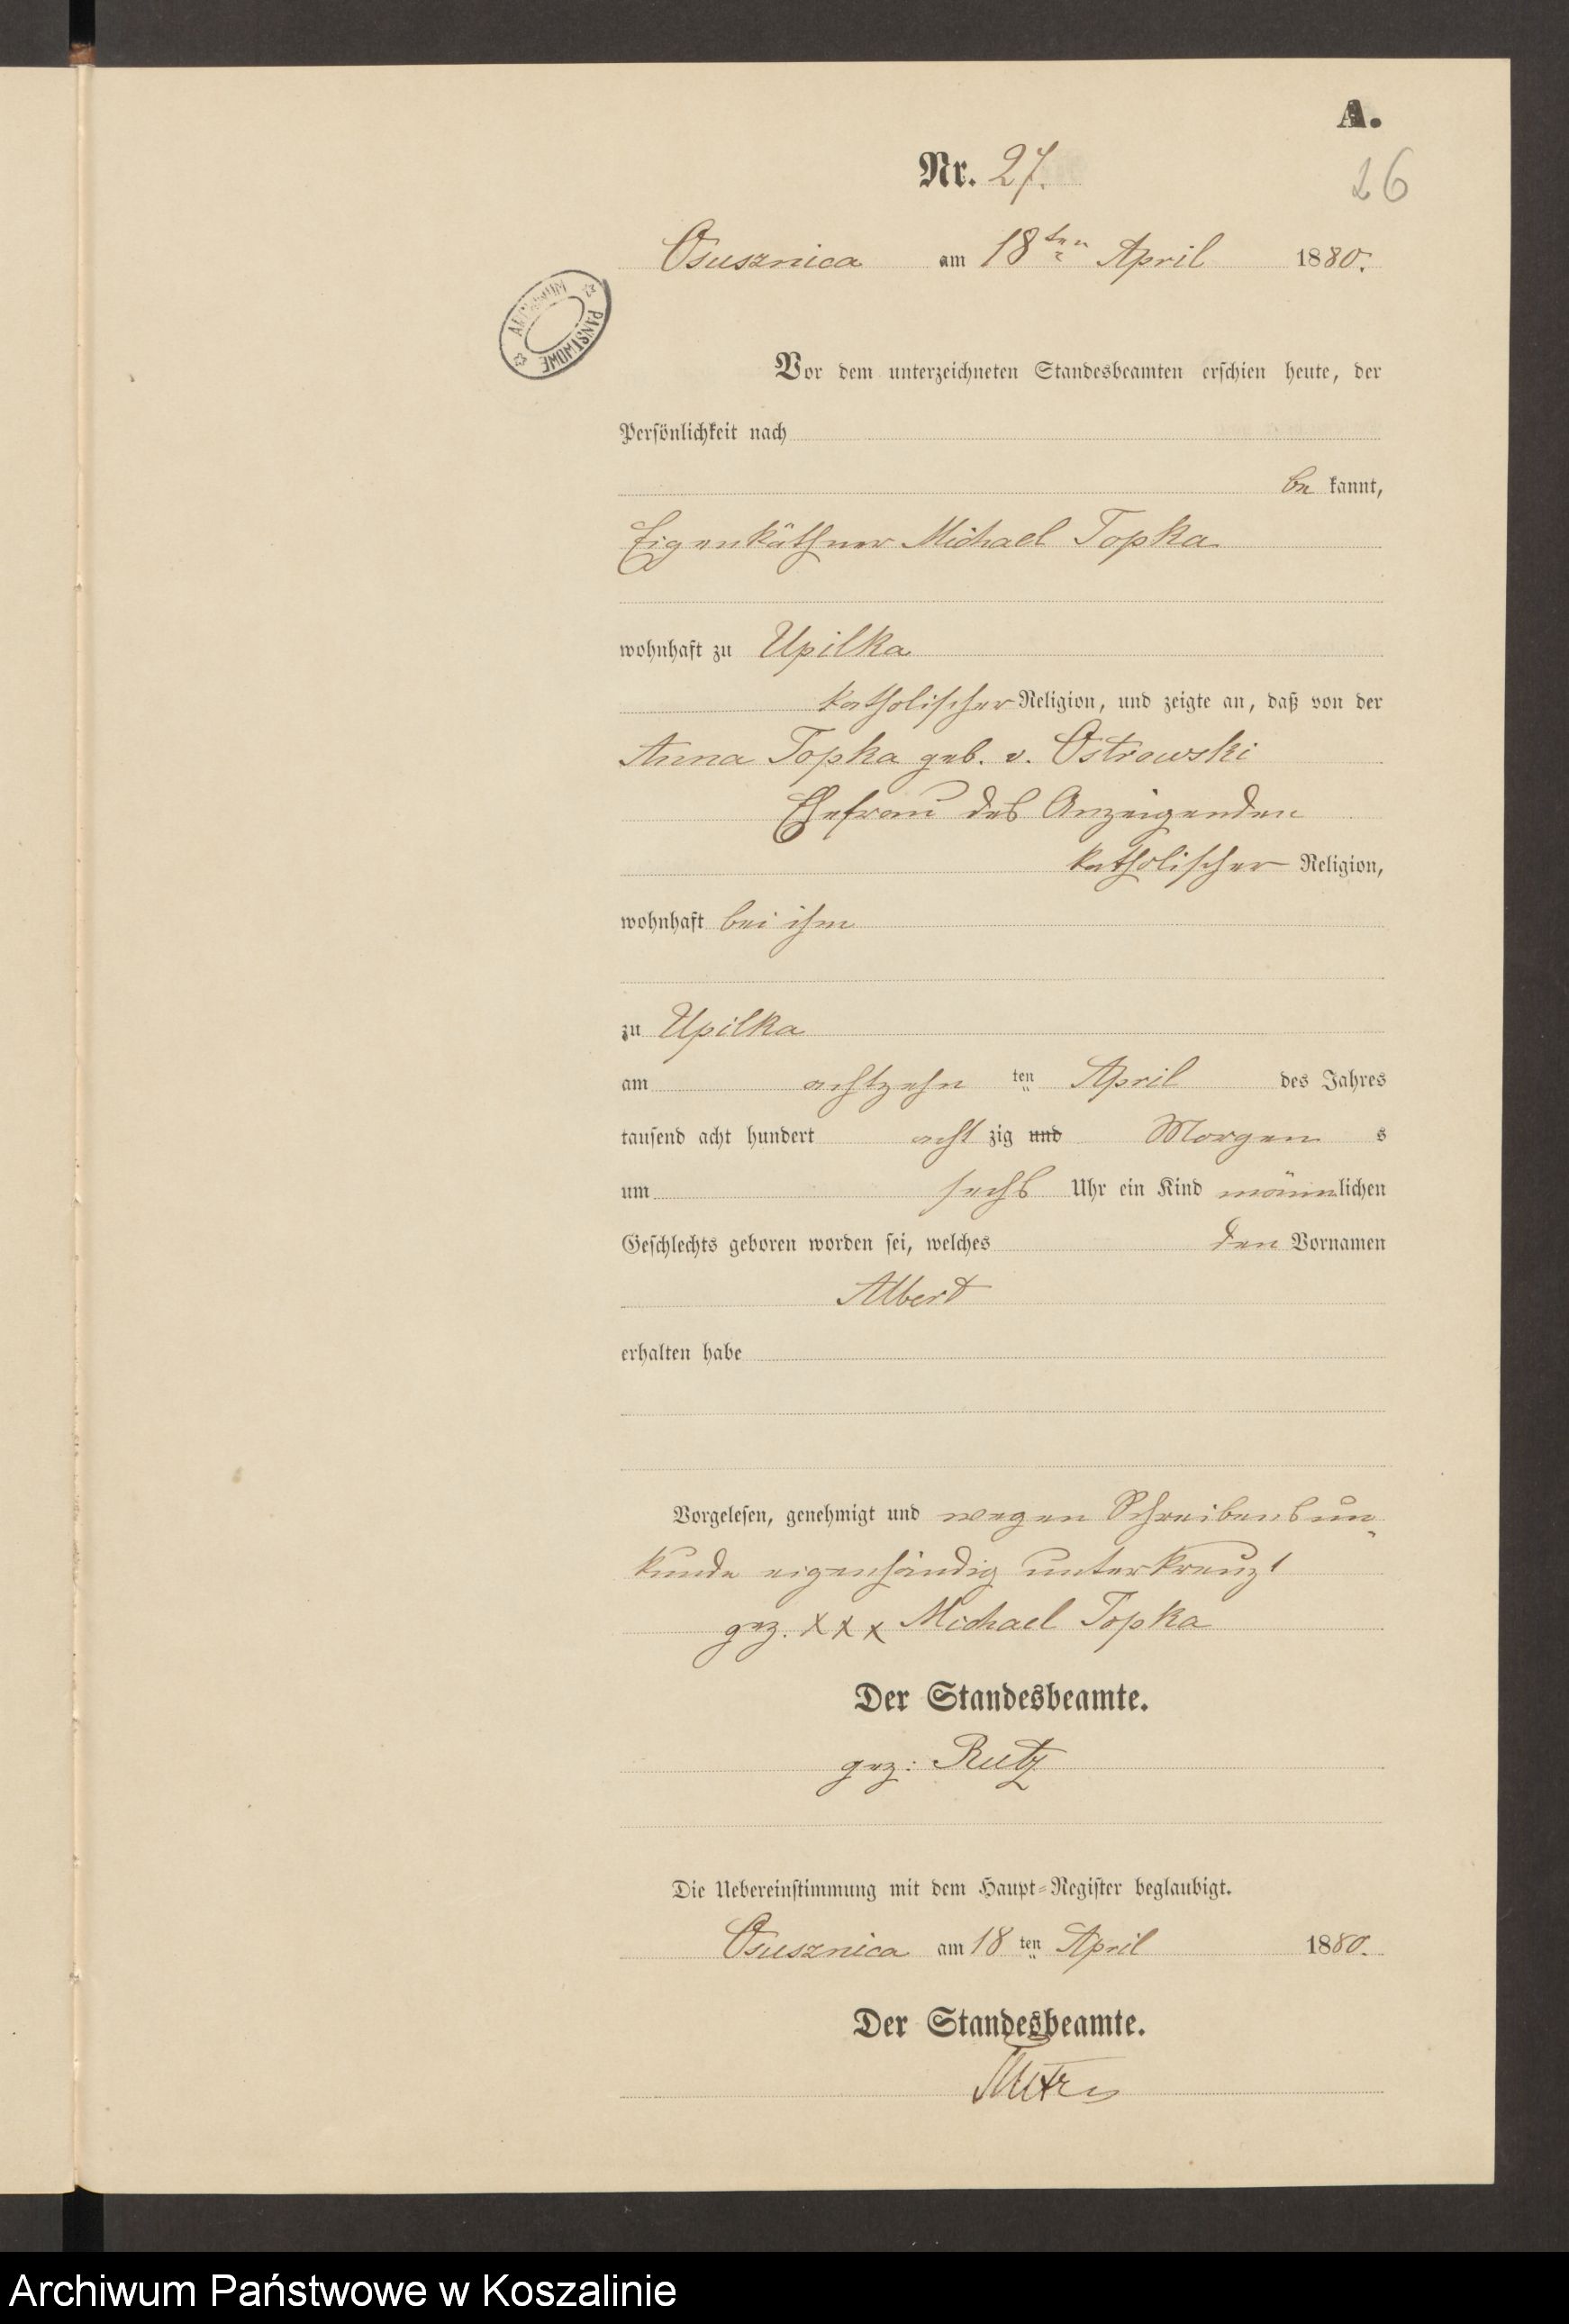 A.
Nr. 27.
26
Osusznica am 18ten April 1880.
ARCHIWUM PAŃSTWOWE
Vor dem unterzeichneten Standesbeamten erschien heute, der
Persönlichkeit nach
be kannt,
Eigenkäthner Michael Topka
wohnhaft zu Upilka
katholischer Religion, und zeigte an, daß von der
Anna Topka geb. v. Ostrowski
Ehefrau des Anzeigenden
katholischer Religion,
wohnhaft bei ihm
zu Upilka
am achtzehn ten April des Jahres
tausend acht hundert acht zig und Morgen s
um sechs Uhr ein Kind männlichen
Geschlechts geboren worden sei, welches den Vornamen
Albert
erhalten habe
Vorgelesen, genehmigt und wegen Schreibensun-
kunde eigenhändig unterkreuzt
gez. x x x Michael Topka
Der Standesbeamte.
gez: Rutz
Die Uebereinstimmung mit dem Haupt-Register beglaubigt.
Osusznica am 18 ten April 1880.
Der Standesbeamte.
Archiwum Państwowe w Koszalinie